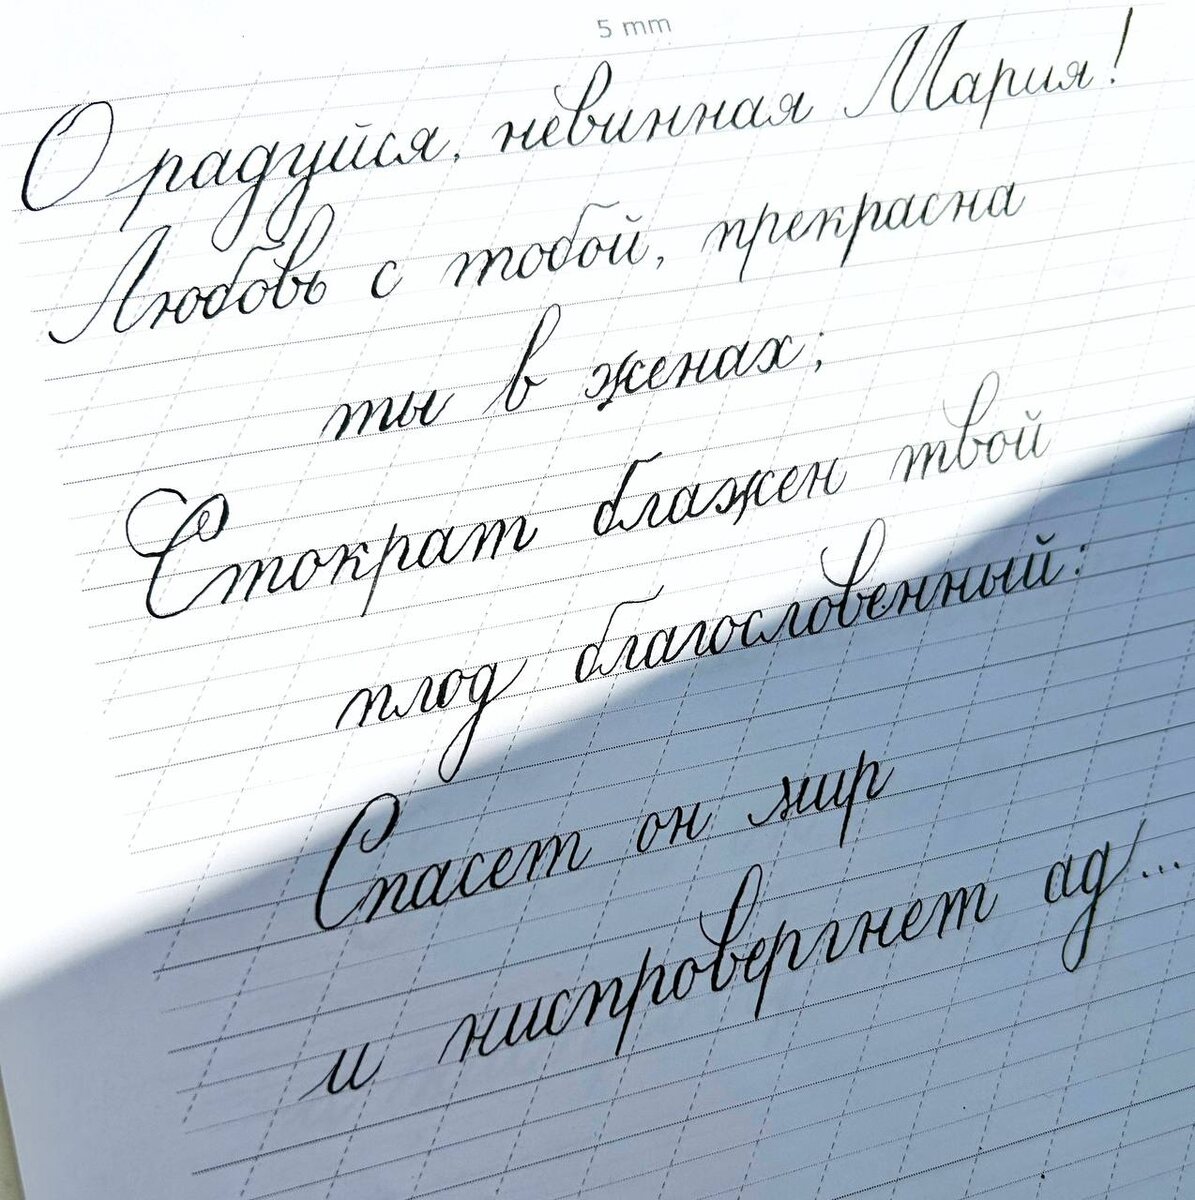 5 mm
О радуйся, невинная Мария!
Любовь с тобой, прекрасна
ты в женах;
Стократ блажен твой
плод благословенный:
Спасет он мир
и ниспровергнет ад...